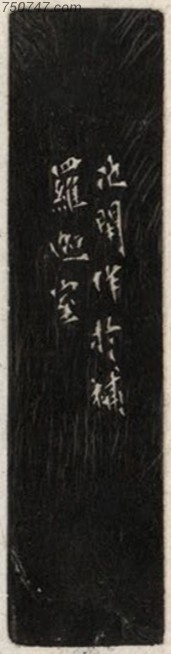 750747.com
池閒作於繡
羅迦室